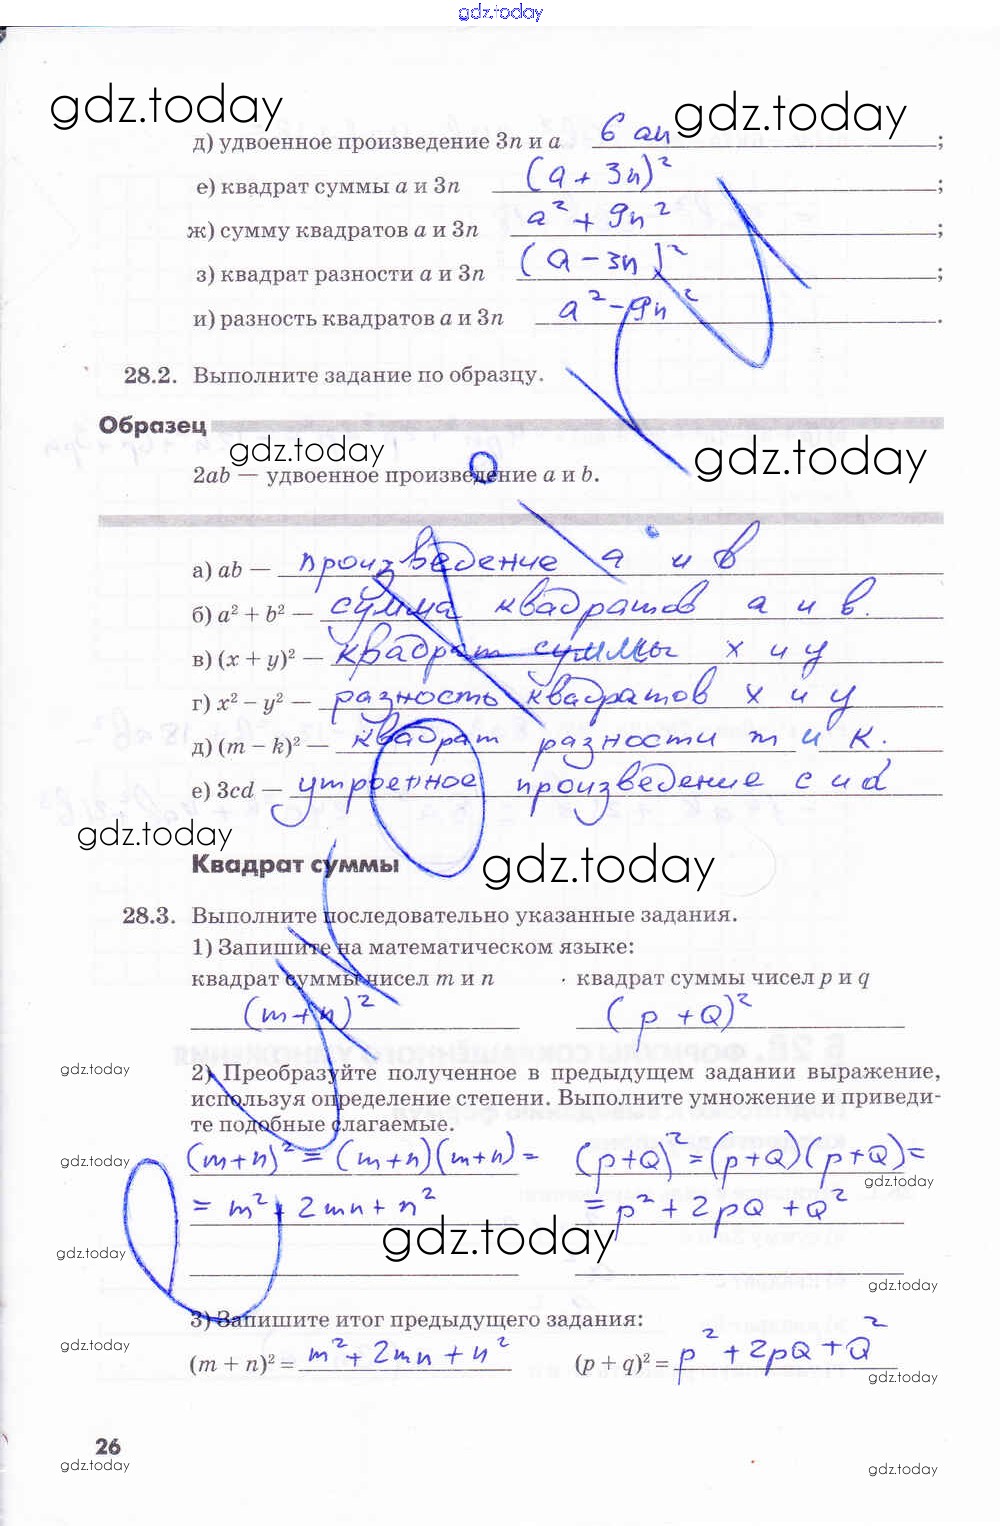 gdz.today
gdz.today
gdz.today
д) удвоенное произведение 3n и a 6 an ;
е) квадрат суммы a и 3n (a + 3n)² ;
ж) сумму квадратов a и 3n a² + 9n² ;
з) квадрат разности a и 3n (a – 3n)² ;
и) разность квадратов a и 3n a² – 9n² .
28.2. Выполните задание по образцу.
Образец
gdz.today
gdz.today
2ab — удвоенное произведение a и b.
а) ab — произведение a и b
б) a² + b² — сумма квадратов a и b.
в) (x + y)² — квадрат суммы x и y
г) x² – y² — разность квадратов x и y
д) (m – k)² — квадрат разности m и k.
е) 3cd — утроенное произведение c и d
gdz.today
gdz.today
Квадрат суммы
28.3. Выполните последовательно указанные задания.
1) Запишите на математическом языке:
квадрат суммы чисел m и n квадрат суммы чисел p и q
(m+n)² (p+Q)²
gdz.today
gdz.today
2) Преобразуйте полученное в предыдущем задании выражение,
используя определение степени. Выполните умножение и приведи-
те подобные слагаемые.
(m+n)² = (m+n)(m+n) = (p+Q)² = (p+Q)(p+Q) =
gdz.today
gdz.today
= m² + 2mn + n² = p² + 2pQ + Q²
gdz.today
gdz.today
gdz.today
3) Запишите итог предыдущего задания:
gdz.today
(m + n)² = m² + 2mn + n² (p + q)² = p² + 2pQ + Q²
gdz.today
26
gdz.today
gdz.today